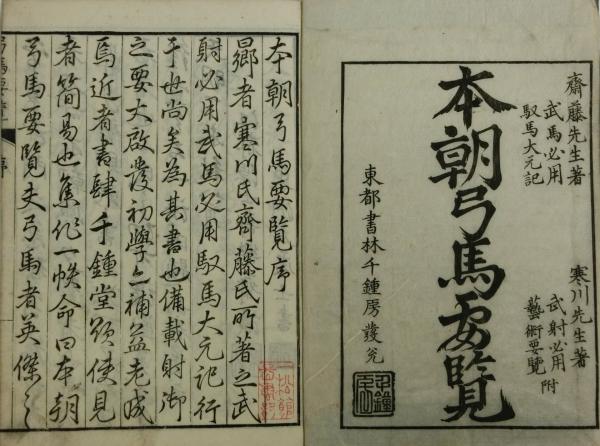 齋藤先生著
武馬必用
馭馬大元記
寒川先生著
武射必用
藝術要覽
附
本朝弓馬要覽
東都書林千鍾房發兌
本朝弓馬要覽序
曏者寒川氏齊藤氏所著之武
射必用武馬必用馭馬大元記行
于世尚矣為其書也備載射御
之要大啟發初學亦補益老成
焉近者書肆千鍾堂欲使見
者簡易也集作一帙命曰本朝
弓馬要覽夫弓馬者英傑之